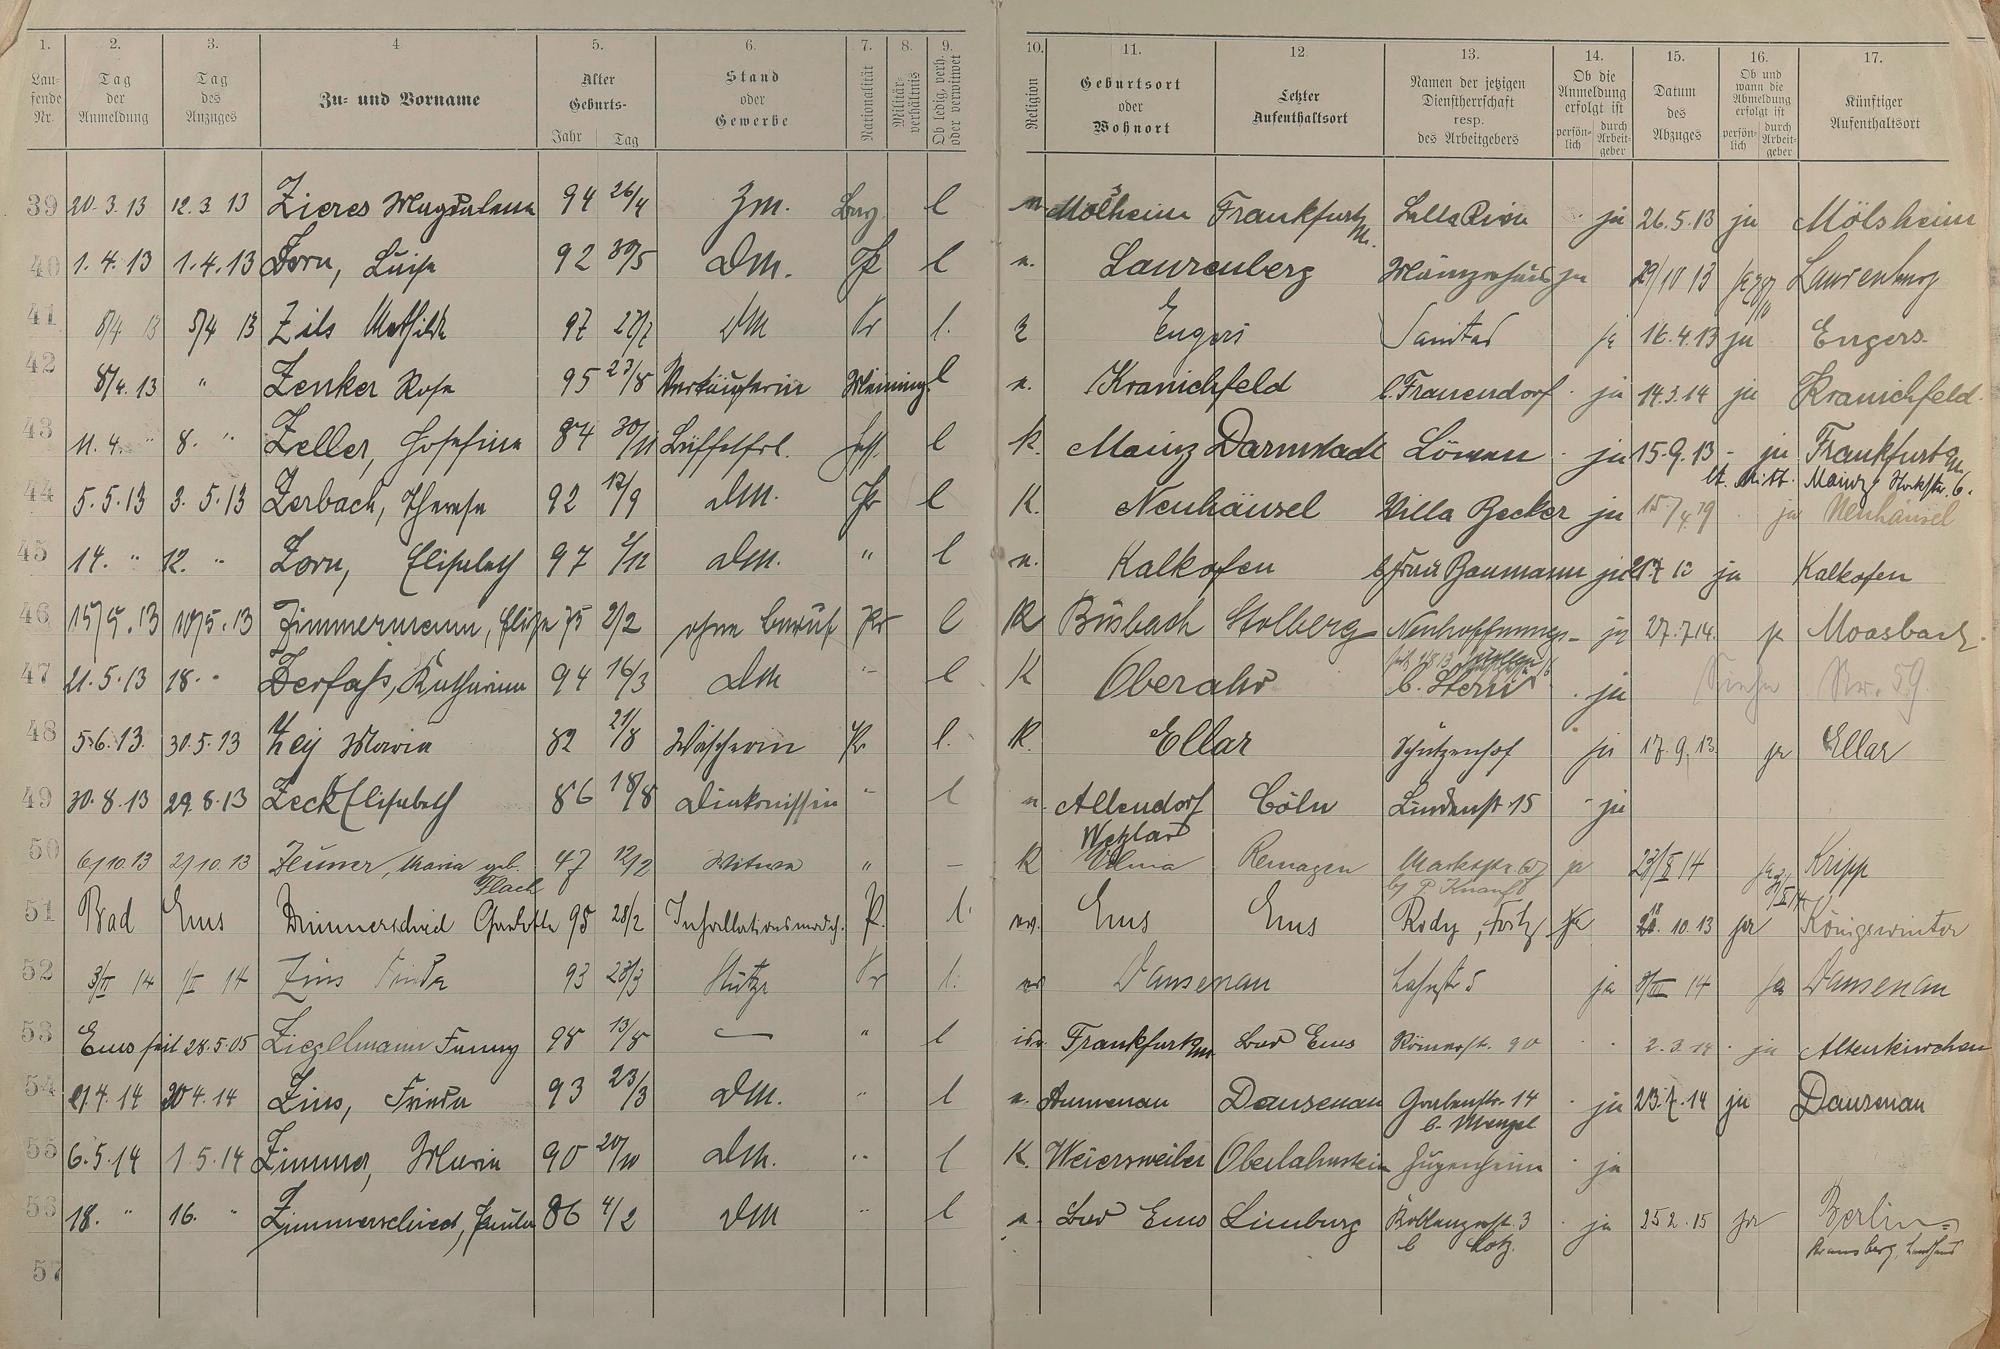 1. 2. 3. 4 5. 6. 7. 8. 9. 10. 11. 12. 13. 14. 15. 16. 17.
Lau-
fende
Nr.
Tag
der
Anmeldung
Tag
des
Anzuges
Zu- und Vorname
Alter
Geburts-
Jahr Tag
Stand
oder
Gewerbe
Nationalität
Militär-
verhältnis
Ob ledig, verh.
oder verwitwet
Religion
Geburtsort
oder
Wohnort
Letzter
Aufenthaltsort
Namen der jetzigen
Dienstherrschaft
resp.
des Arbeitgebers
Ob die
Anmeldung
erfolgt ist
persön-
lich
durch
Arbeit-
geber
Datum
des
Abzuges
Ob und
wann die
Abmeldung
erfolgt ist
persön-
lich
durch
Arbeit-
geber
Künftiger
Aufenthaltsort
39 20.3.13 12.3.13 Zieres Magdalena 94 26/4 Zm. l Frankfurt ja 26.5.13 ja Mölsheim
40 1.4.13 1.4.13 Zorn, Luise 92 30/5 DM. Pr l Laurenberg ja 29/10 13 Laurenburg
41 8/4 13 5/4 13 Zils Mathilde 97 27/7 DM Pr l. Engers ja 16.4.13 ja Engers.
42 8/4.13 " Zenker Rosa 95 23/8 Verkäuferin Meining. l Kranichfeld b. Frauendorf ja 14.3.14 ja Kranichfeld.
43 11.4. " 8. " Zeller, Josefine 84 30/11 Büffetfrl. Hess. l K. Mainz Darmstadt Löwen ja 15.9.13 - ja Frankfurt
lt. Mitt. Mainz 6.
44 5.5.13 3.5.13 Zerbach, Therese 92 12/9 DM. Pr l K. Neuhäusel Villa Becker ja ja Neuhäusel
45 14. " 12. " Zorn, Elisabeth 97 DM. " l Kalkofen b Frau Baumann ja ja Kalkofen
46 15/5.13 10/5.13 Zimmermann, Elise 75 2/2 ohne Beruf Pr l K Büsbach Stolberg ja 27.7.14. ja
47 21.5.13 18. " Zerfass, Katharina 94 16/3 DM l K Oberahr ja Siehe Nr. 59
48 5.6.13. 30.5.13 Zey Maria 82 21/8 Wäscherin Pr l. K. Ellar Schützenhof ja 17.9.13 ja Ellar
49 30.8.13 29.8.13 Zeck Elisabeth 86 18/8 Diakonissin l Allendorf Cöln Lindenst 15 ja
Wetzlar
50 6/10.13 2/10.13 Maria geb. 47 12/2 Witwe " - K Remagen ja 23/II 14 Kripp
Flach
51 Bad Ems 95 28/2 l. Ems Ems Rody, ja 10.13 ja Königswinter
52 3/II 14 1/II 14 Zins Frieda 93 23/3 Stütze Pr l. Dausenau Lahnstr 5 ja 8/III 14 ja Dausenau
53 Ems seit 28.5.05 Ziegellmann Fanny 98 13/8 — " l isr. Frankfurt Bad Ems Römerst. 90 2.3.14 ja Altenkirchen
54 21.4.14 20.4.14 Zins, Frieda 93 23/3 DM. " l Dausenau Grabenstr. 14 ja 23.7.14 ja Dausenau
b. Menzel
55 6.5.14 1.5.14 Zimmer, Maria 90 20/10 DM. " l K. Weiersweiler Oberlahnstein Hugenheim ja
56 18. " 16. " Zimmerschied, Paula 86 4/2 DM " l Bad Ems Limburg ja 25 2.15 ja Berlin
b Lotz.
57